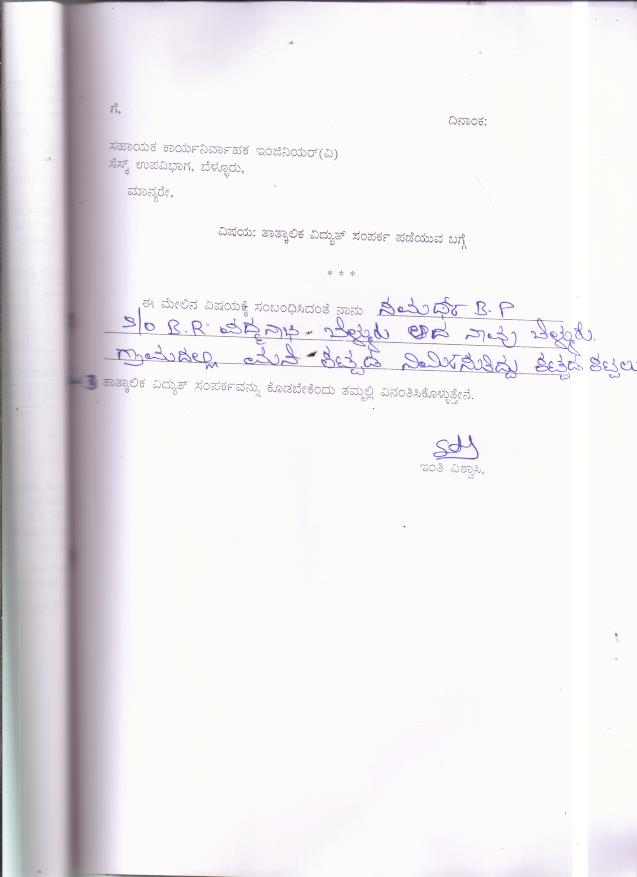 ಗೆ,
ದಿನಾಂಕ:
ಸಹಾಯಕ ಕಾರ್ಯನಿರ್ವಾಹಕ ಇಂಜಿನಿಯರ್(ವಿ)
ಸೆಸ್ಕ್ ಉಪವಿಭಾಗ, ಬೆಳ್ಳೂರು,
ಮಾನ್ಯರೇ,
ವಿಷಯ: ತಾತ್ಕಾಲಿಕ ವಿದ್ಯುತ್ ಸಂಪರ್ಕ ಪಡೆಯುವ ಬಗ್ಗೆ
* * *
ಈ ಮೇಲಿನ ವಿಷಯಕ್ಕೆ ಸಂಬಂಧಿಸಿದಂತೆ ನಾನು B.P
S/o B.R ಪದ್ಮನಾಭ ಬೆಳ್ಳೂರು ಆದ ನಾನು ಬೆಳ್ಳೂರು.
ಗ್ರಾಮದಲ್ಲಿ ಮನೆ ಕಟ್ಟಡ ಕಟ್ಟಡ ಕಟ್ಟಲು
ತಾತ್ಕಾಲಿಕ ವಿದ್ಯುತ್ ಸಂಪರ್ಕವನ್ನು ಕೊಡಬೇಕೆಂದು ತಮ್ಮಲ್ಲಿ ವಿನಂತಿಸಿಕೊಳ್ಳುತ್ತೇನೆ.
ಇಂತಿ ವಿಶ್ವಾಸಿ,